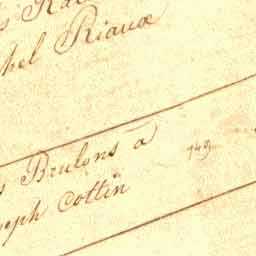 s Ra
chel Riaux
s Brulons à
oseph Cottin
749